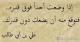 إذا وضعت أحداً فوق قدره،
فتوقع منه أن يضعك دون قدرك.
علي بن أبي طالب